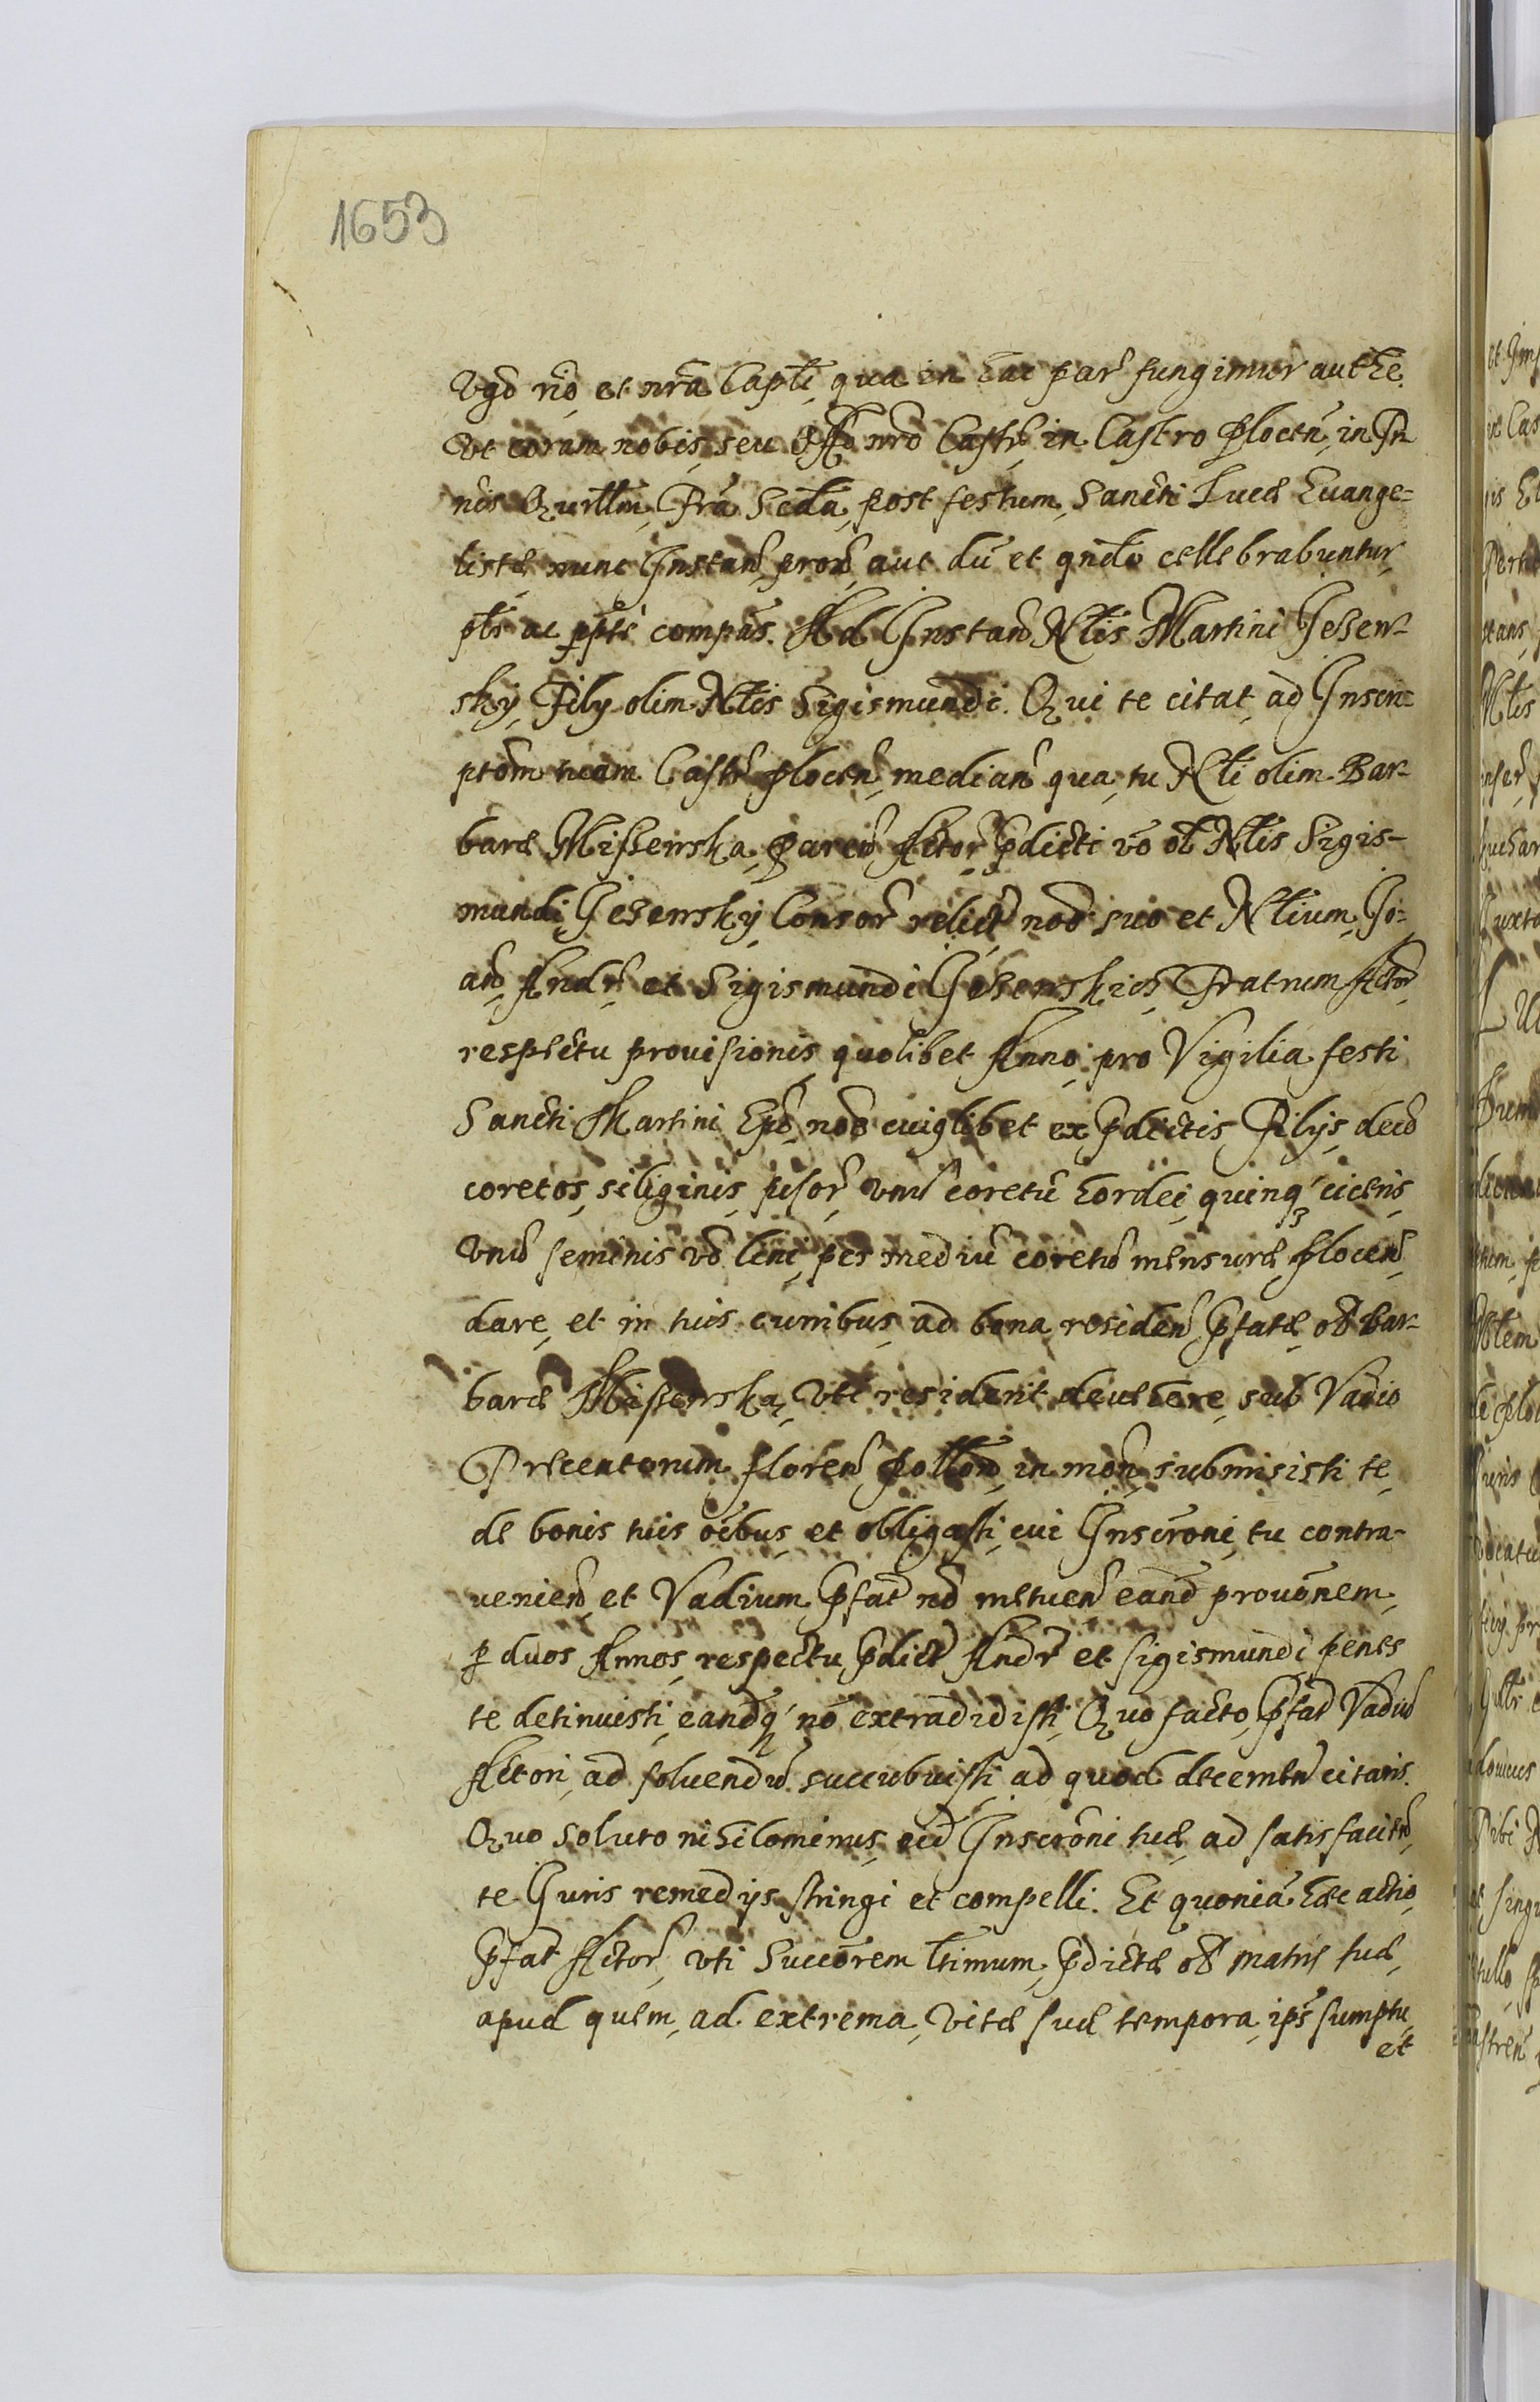 1653
Vgo rio et nrã Captli, qua in hac par fungimur authe.
Vt coram nobis, seu Offo nro Castr, in Castro Plocen, in Jn
nos Qurtlm, Fra Scda, post festum, Sancti Lucæ Euange-
listæ nunc Jnstan, prox, aut dũ et qndo cellebrabuntur,
pltr ac ppte compas. Ad Jnstan Nlis Martini Jezew-
sky, Fily olim Nlis Sigismundi. Qui te citat, ad Jnscri-
ptom tuam Castr Plocen, median qua, tu Nli olim Bar-
baræ Missewska, Paren Actor, pdicti võ ol Nlis Sigis-
mundi, Jezewsky, Consor relict noe suo et Nlium, Jo-
an, Andr, et Sigismundi Jezewskich, Fratrum Actor,
respectu prouisionis, quolibet Anno, pro Vigilia festi
Sancti Martini Epi, noe cuiglibet ex pdictis, Filijs, dece
coretos, siliginis, pisor, vnũ coretũ hordei, quinq, cicens,
vnũ seminis võ lini, per mediũ coretũ mensuræ, Plocen,
dare, et in tuis curribus, ad bona, residen pfatæ, ol Bar-
baræ Missewska, vbi resident deuehere, sub Vadio
Trecentorum floren Pollon, in mon, submisisti te,
de bonis tuis oibus, et obligasti, cui Jnscroni, tu contra-
uenien, et Vadium, pfat nõ metuen eand prouonem,
p duos Annos, respectu, pdict Andr et Sigismundi penes
te detinuisti, eandq nõ extradidisti, Quo facto, pfat Vadiũ
Actori, ad soluendũ succubuisti, ad quod decernen citaris.
Quo soluto nihilominus, eid Jnscroni tuæ, ad satisfacien,
te Juris remedijs stringi et compelli. Et quoniã hæc actio,
pfat Actor, vti Succorem ltimum, pdictæ ol matris suæ,
apud quem, ad extrema, vitæ suæ tempora, ips sumptu,
et